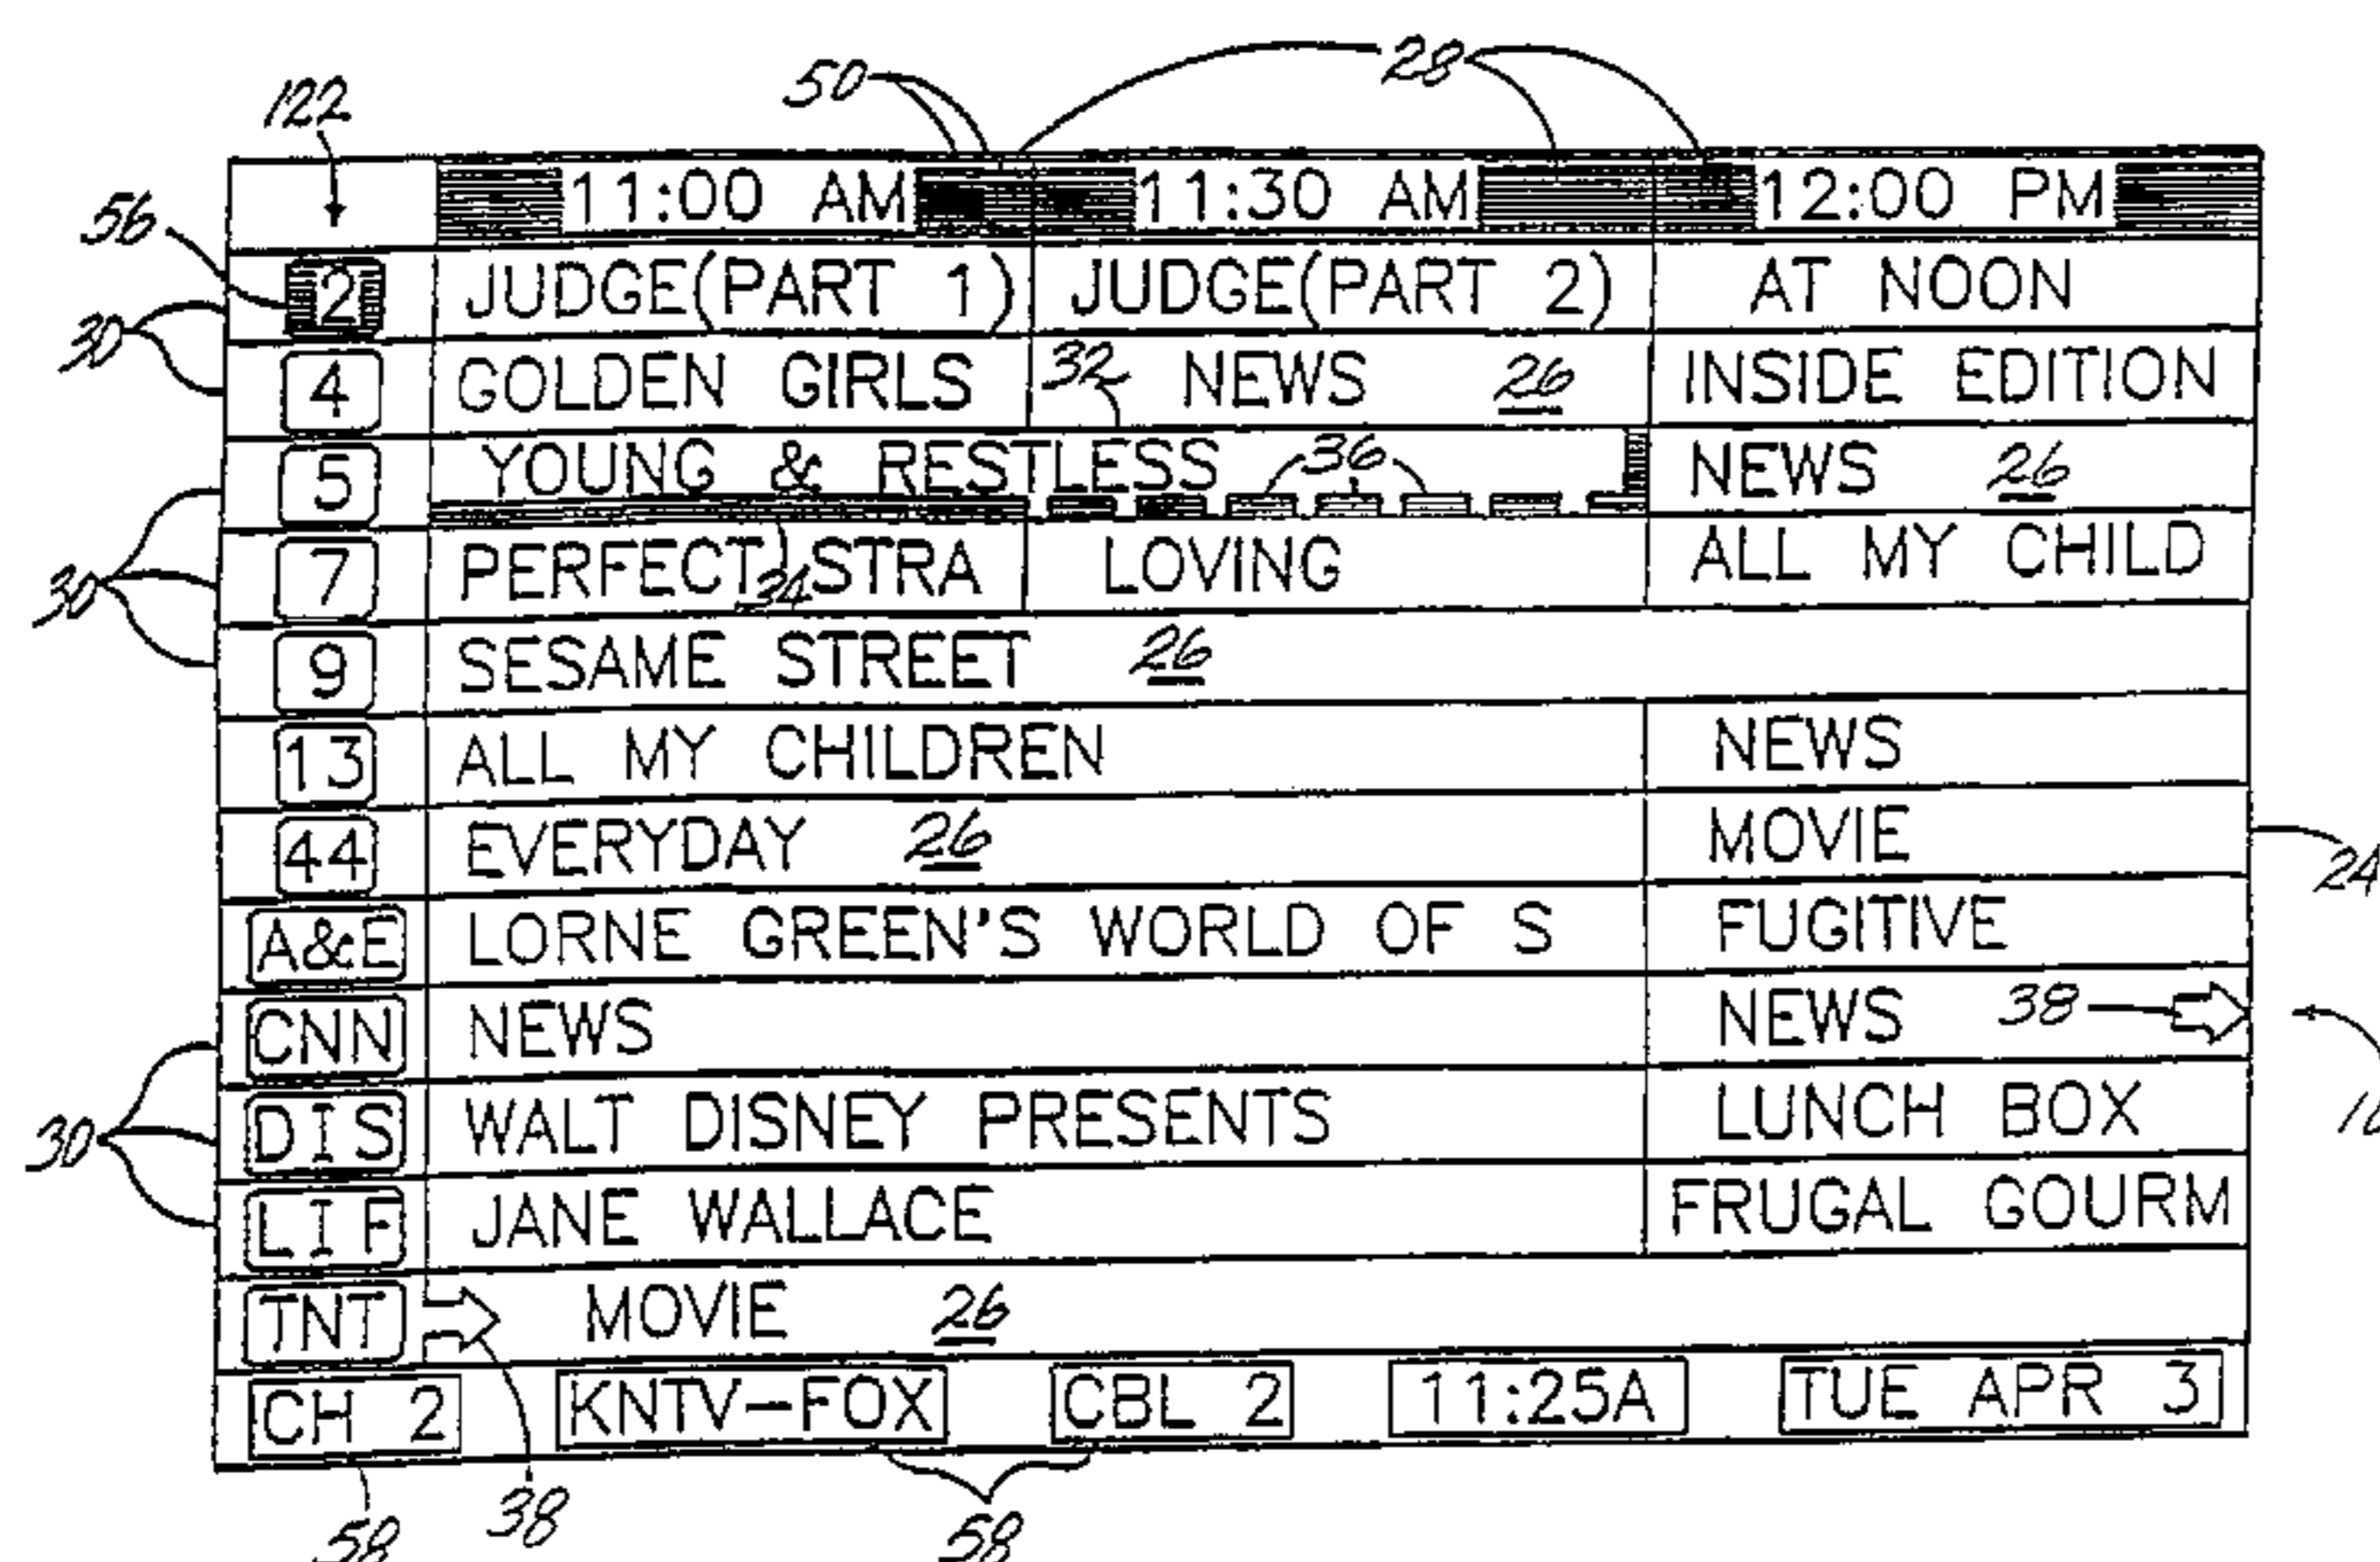 50 28
122
11:00 AM 11:30 AM 12:00 PM
56
2 JUDGE(PART 1) JUDGE(PART 2) AT NOON
30
4 GOLDEN GIRLS 32 NEWS 26 INSIDE EDITION
5 YOUNG & RESTLESS 36 NEWS 26
30 7 PERFECT STRA 34 LOVING ALL MY CHILD
9 SESAME STREET 26
13 ALL MY CHILDREN NEWS
44 EVERYDAY 26 MOVIE
24
A&E LORNE GREEN'S WORLD OF S FUGITIVE
CNN NEWS NEWS 38
30 DIS WALT DISNEY PRESENTS LUNCH BOX
LIF JANE WALLACE FRUGAL GOURM
TNT MOVIE 26
CH 2 KNTV-FOX CBL 2 11:25A TUE APR 3
58 38 58